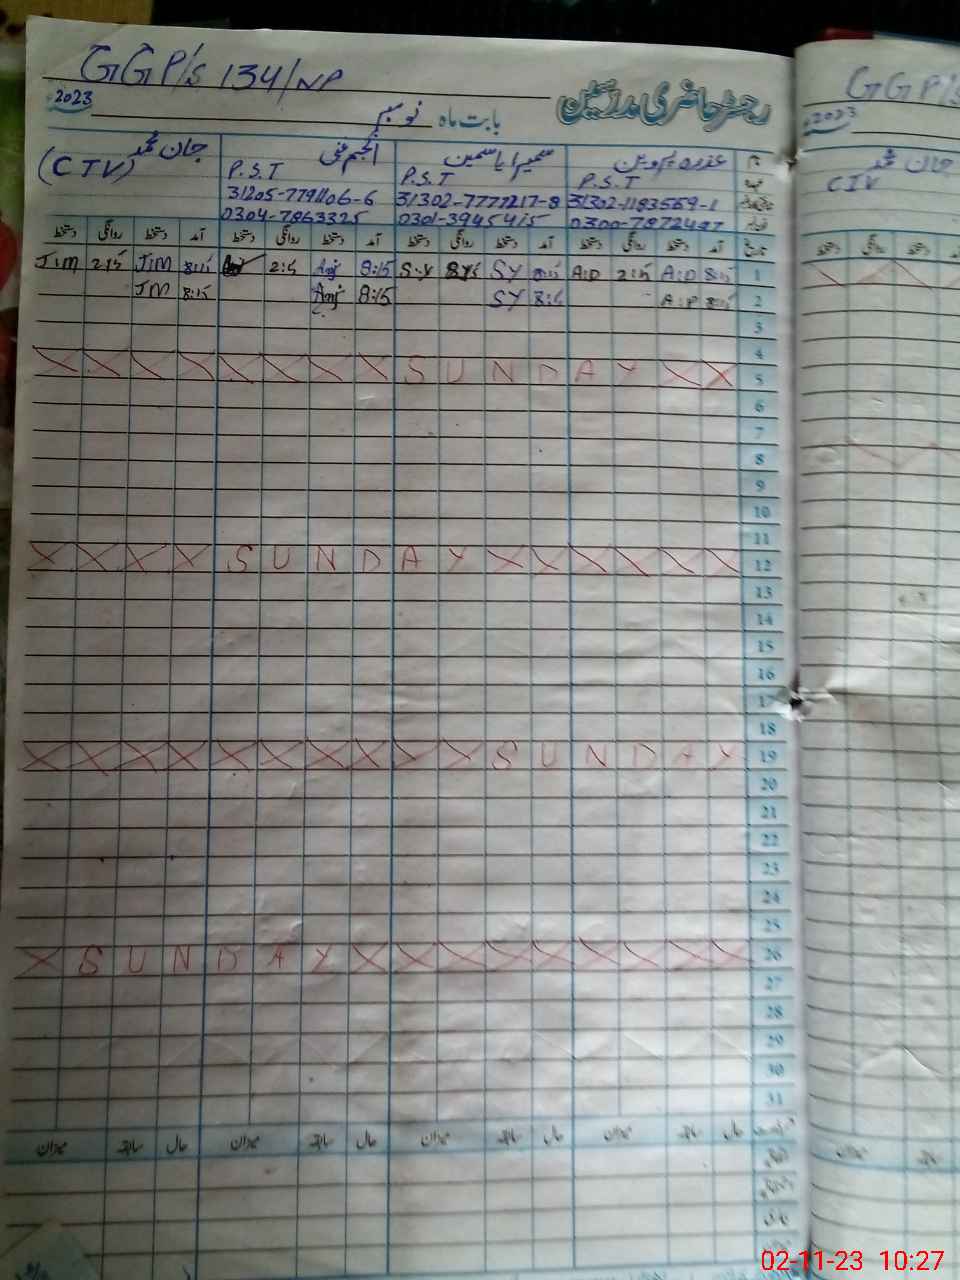 GGP/S 134/NP
رجسٹر حاضری مدرسین
2023 بابت ماہ نومبر
عذرہ پروین سمیرا یاسمین انجم جان محمد
P.S.T P.S.T P.S.T (CTV)
31302-1183569-1 31302-7777217-8 31205-7791106-6
0300-7872497 0301-3945415 0304-7863325
تاریخ آمد دستخط روانگی دستخط آمد دستخط روانگی دستخط آمد دستخط روانگی دستخط آمد دستخط روانگی دستخط
1 8:15 A:D 2:15 A:D 8:15 SY S.Y 8:15 Anj 2:15 8:15 JIM 2:15 JIM
2 8:15 SY 8:15 Anj 8:15 JM
3
4
5 SUNDAY
6
7
8
9
10
11
12 SUNDAY
13
14
15
16
17
18
19 SUNDAY
20
21
22
23
24
25
26 SUNDAY
27
28
29
30
31
حال سابقہ میزان حال سابقہ میزان حال سابقہ میزان حال سابقہ میزان
GGP/S
2023
جان محمد
CIV
دستخط روانگی دستخط
میزان سابقہ
02-11-23 10:27